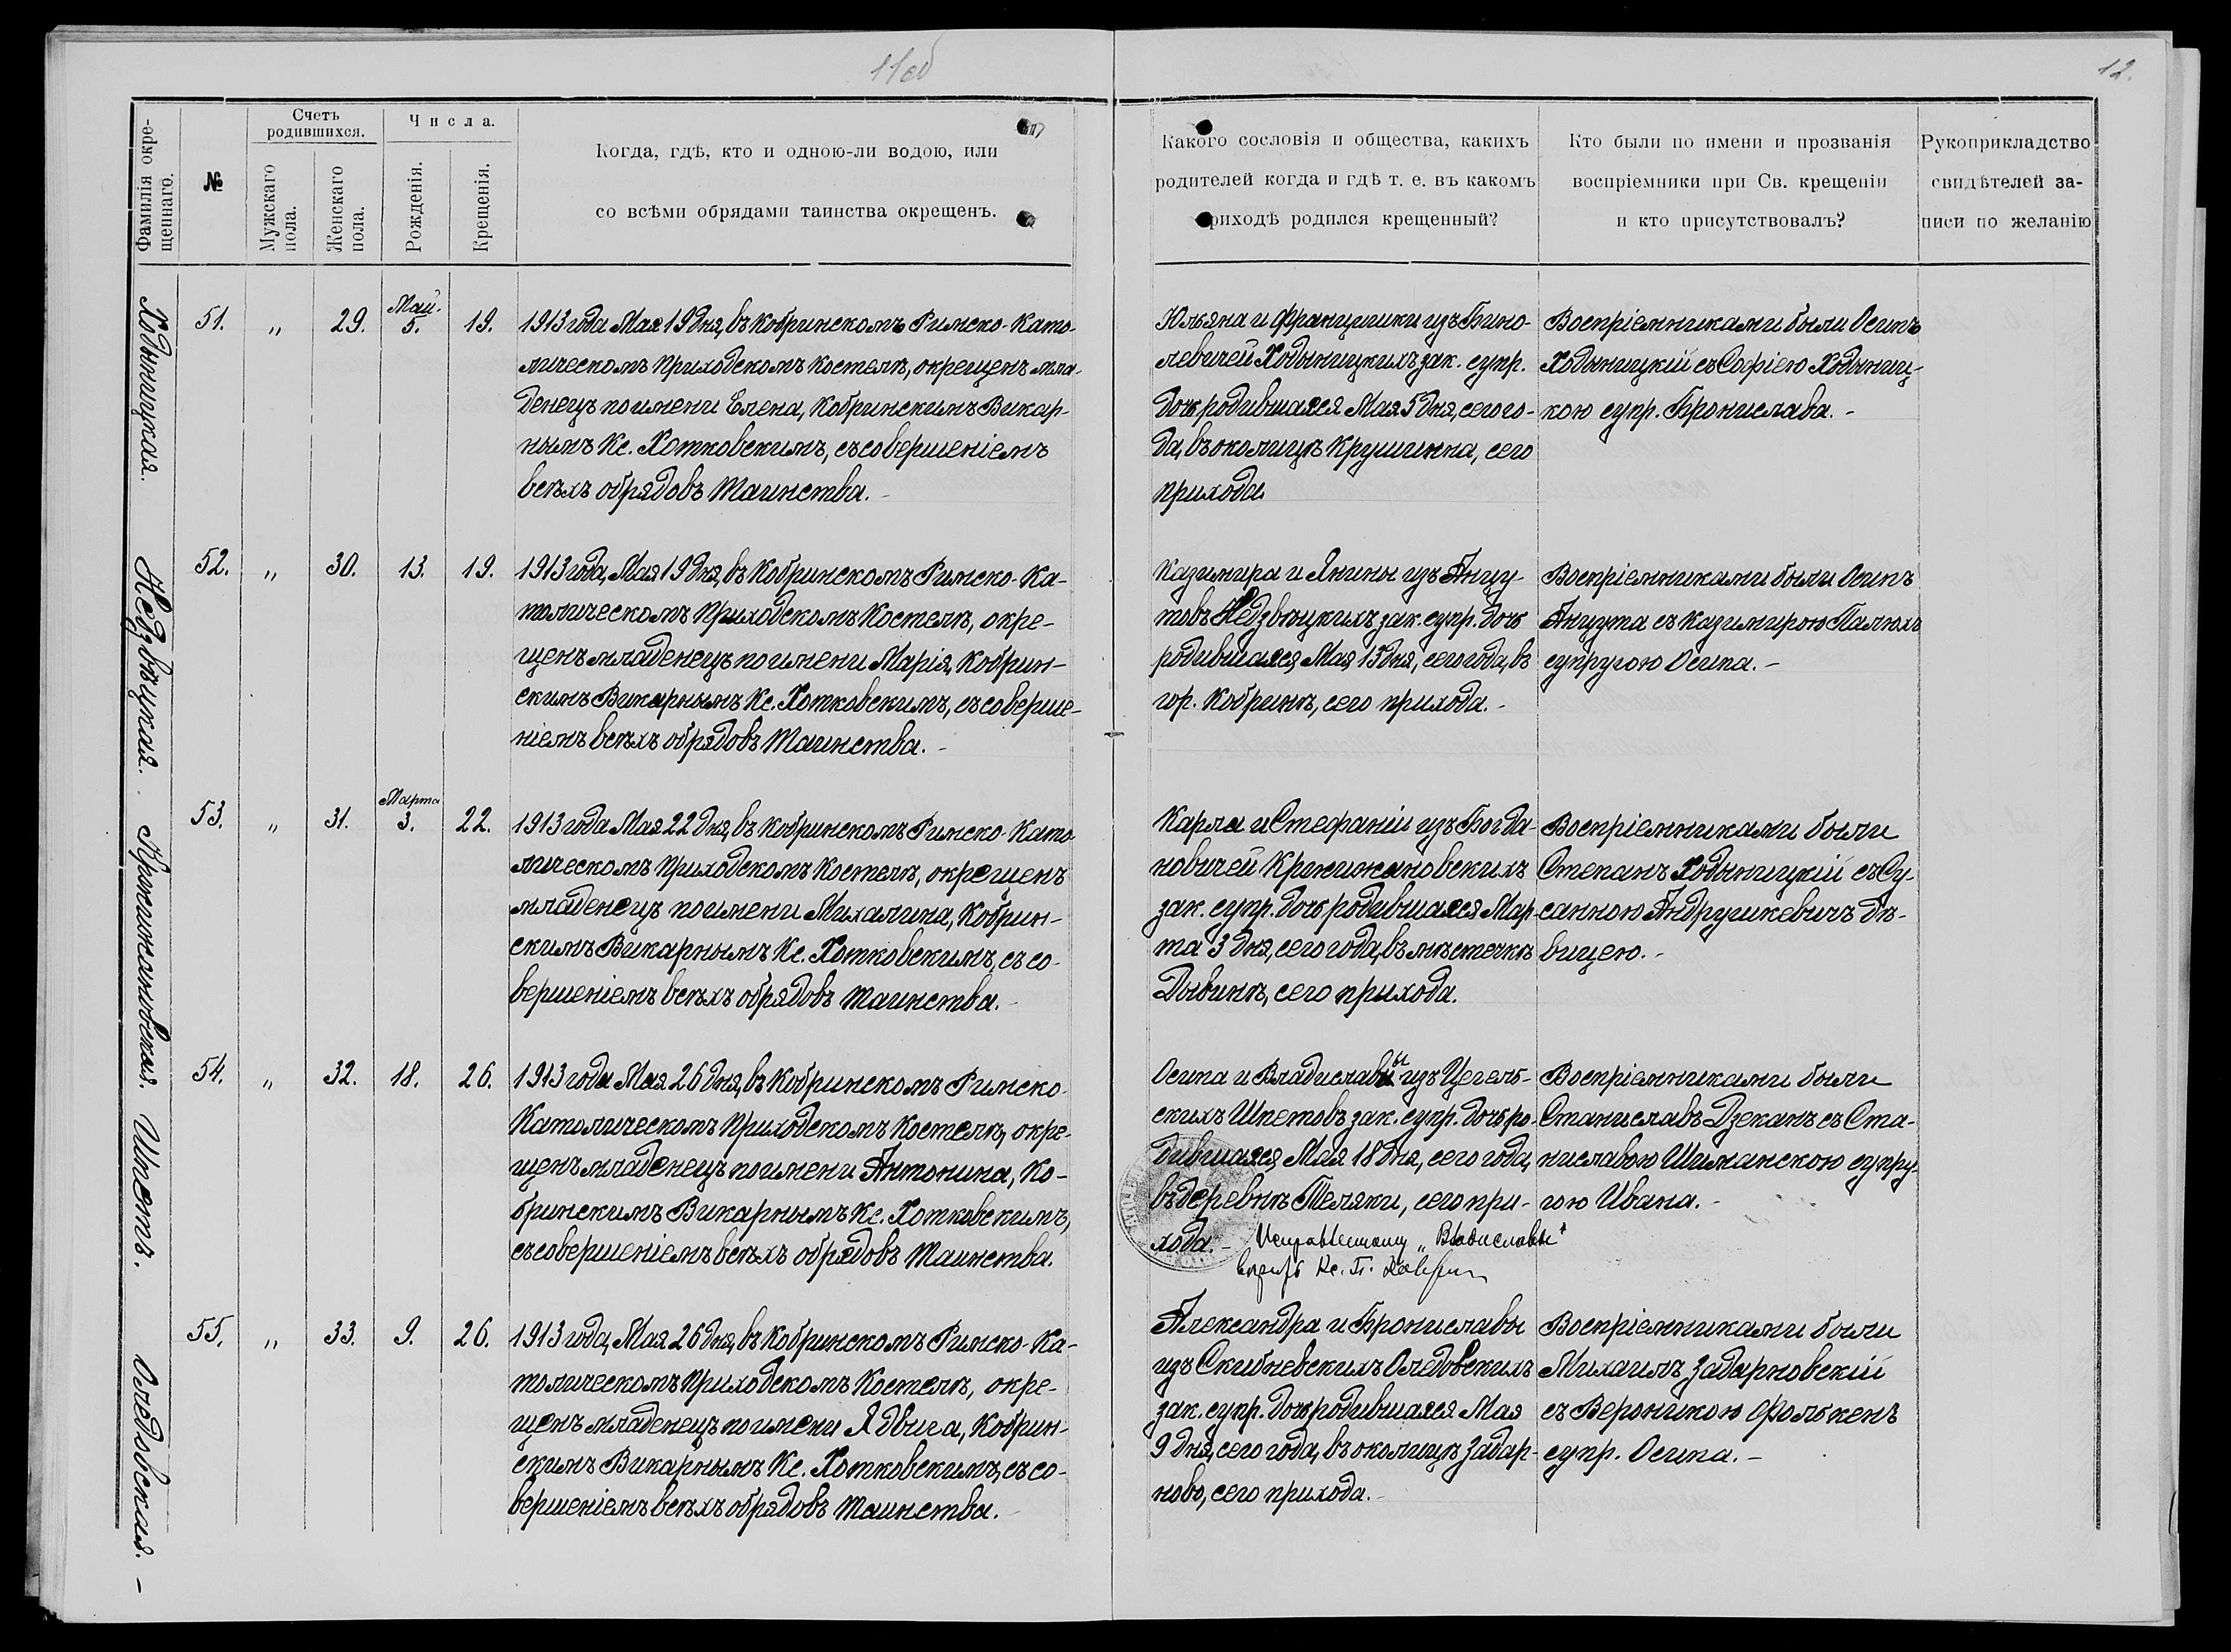 11об
12.
Фамилія окре-
щеннаго.
№
Счетъ
родившихся.
Мужскаго
пола.
Женскаго
пола.
Числа.
Рожденія.
Крещенія.
Когда, гдѣ, кто и одною-ли водою, или
со всѣми обрядами таинства окрещенъ.
Какого сословія и общества, какихъ
родителей когда и гдѣ т. е. въ какомъ
приходѣ родился крещенный?
Кто были по имени и прозванія
воспріемники при Св. крещеніи
и кто присутствовалъ?
Рукоприкладство
свидѣтелей за-
писи по желанію
Ходыницкая.
51.
„
29.
Май.
5.
19.
1913 года Мая 19 дня, въ Кобринскомъ Римско-Като-
лическомъ Приходскомъ Костелѣ, окрещенъ мла-
денецъ по имени Елена, Кобринскимъ Викар-
нымъ Кс. Хотковскимъ, съ совершеніемъ
всѣхъ обрядовъ Таинства.-
Юльяна и Францишки изъ Бино-
левичей Ходыницкихъ зак. супр.
дочь родившаяся Мая 5 дня, сего го-
да, въ околицѣ Крушина, сего
прихода
Воспріемниками были Осипъ
Ходыницкій съ Софіею Ходыниц-
кою супр. Бронислава.-
Недзвѣцкая.
52.
„
30.
13.
19.
1913 года, Мая 19 дня, въ Кобринскомъ Римско-Ка-
толическомъ Приходскомъ Костелѣ, окре-
щенъ младенецъ по имени Марія, Кобрин-
скимъ Викарнымъ Кс. Хотковскимъ, съ соверше-
ніемъ всѣхъ обрядовъ Таинства.-
Казимира и Янины изъ Анцу-
товъ Недзвѣцкихъ зак. супр. дочь
родившаяся Мая 13 дня, сего года, въ
гор. Кобринѣ, сего прихода.-
Воспріемниками были Осипъ
Анцута съ Казимирою Палюхъ
супругою Осипа.-
Кржижановская.
53.
„
31.
Марта
3.
22.
1913 года Мая 22 дня, въ Кобринскомъ Римско-Като-
лическомъ Приходскомъ Костелѣ, окрещенъ
младенецъ по имени Михалина, Кобрин-
скимъ Викарнымъ Кс. Хотковскимъ, съ со-
вершеніемъ всѣхъ обрядовъ таинства.-
Карла и Стефаніи изъ Богда-
новичей Кржижановскихъ
зак. супр. дочь родившаяся Мар-
та 3 дня, сего года, въ мѣстечкѣ
Дывинѣ, сего прихода.
Воспріемниками были
Степанъ Ходыницкій съ Су-
санною Андрушкевичъ дѣ-
вицею.-
Шпетъ.
54.
„
32.
18.
26.
1913 года Мая 26 дня, въ Кобринскомъ Римско-
Католическомъ Приходскомъ Костелѣ, окре-
щенъ младенецъ по имени Антонина, Ко-
бринскимъ Викарнымъ Кс. Хотковскимъ,
съ совершеніемъ всѣхъ обрядовъ Таинства.
Осипа и Владиславы изъ Цегель-
скихъ Шпетовъ зак. супр. дочь ро-
дившаяся Мая 18 дня, сего года,
въ деревнѣ Теляки, сего при-
хода.-
Исправленному „Владиславы"
вѣрить Кс. П.
Воспріемниками были
Станиславъ Дзеканъ съ Ста-
ниславою Шиманскою супру-
гою Ивана.-
Оледовская.-
55.
„
33.
9.
26.
1913 года, Мая 26 дня, въ Кобринскомъ Римско-Ка-
толическомъ Приходскомъ Костелѣ, окре-
щенъ младенецъ по имени Ядвига, Кобрин-
скимъ Викарнымъ Кс. Хотковскимъ, съ со-
вершеніемъ всѣхъ обрядовъ Таинства.
Александра и Брониславы
изъ Скибневскихъ Оледовскихъ
зак. супр. дочь родившаяся Мая
9 дня, сего года, въ околицѣ Задар-
ново, сего прихода.-
Воспріемниками были
Михаилъ Задарновскій
съ Вероникою Фолькенъ
супр. Осипа.-